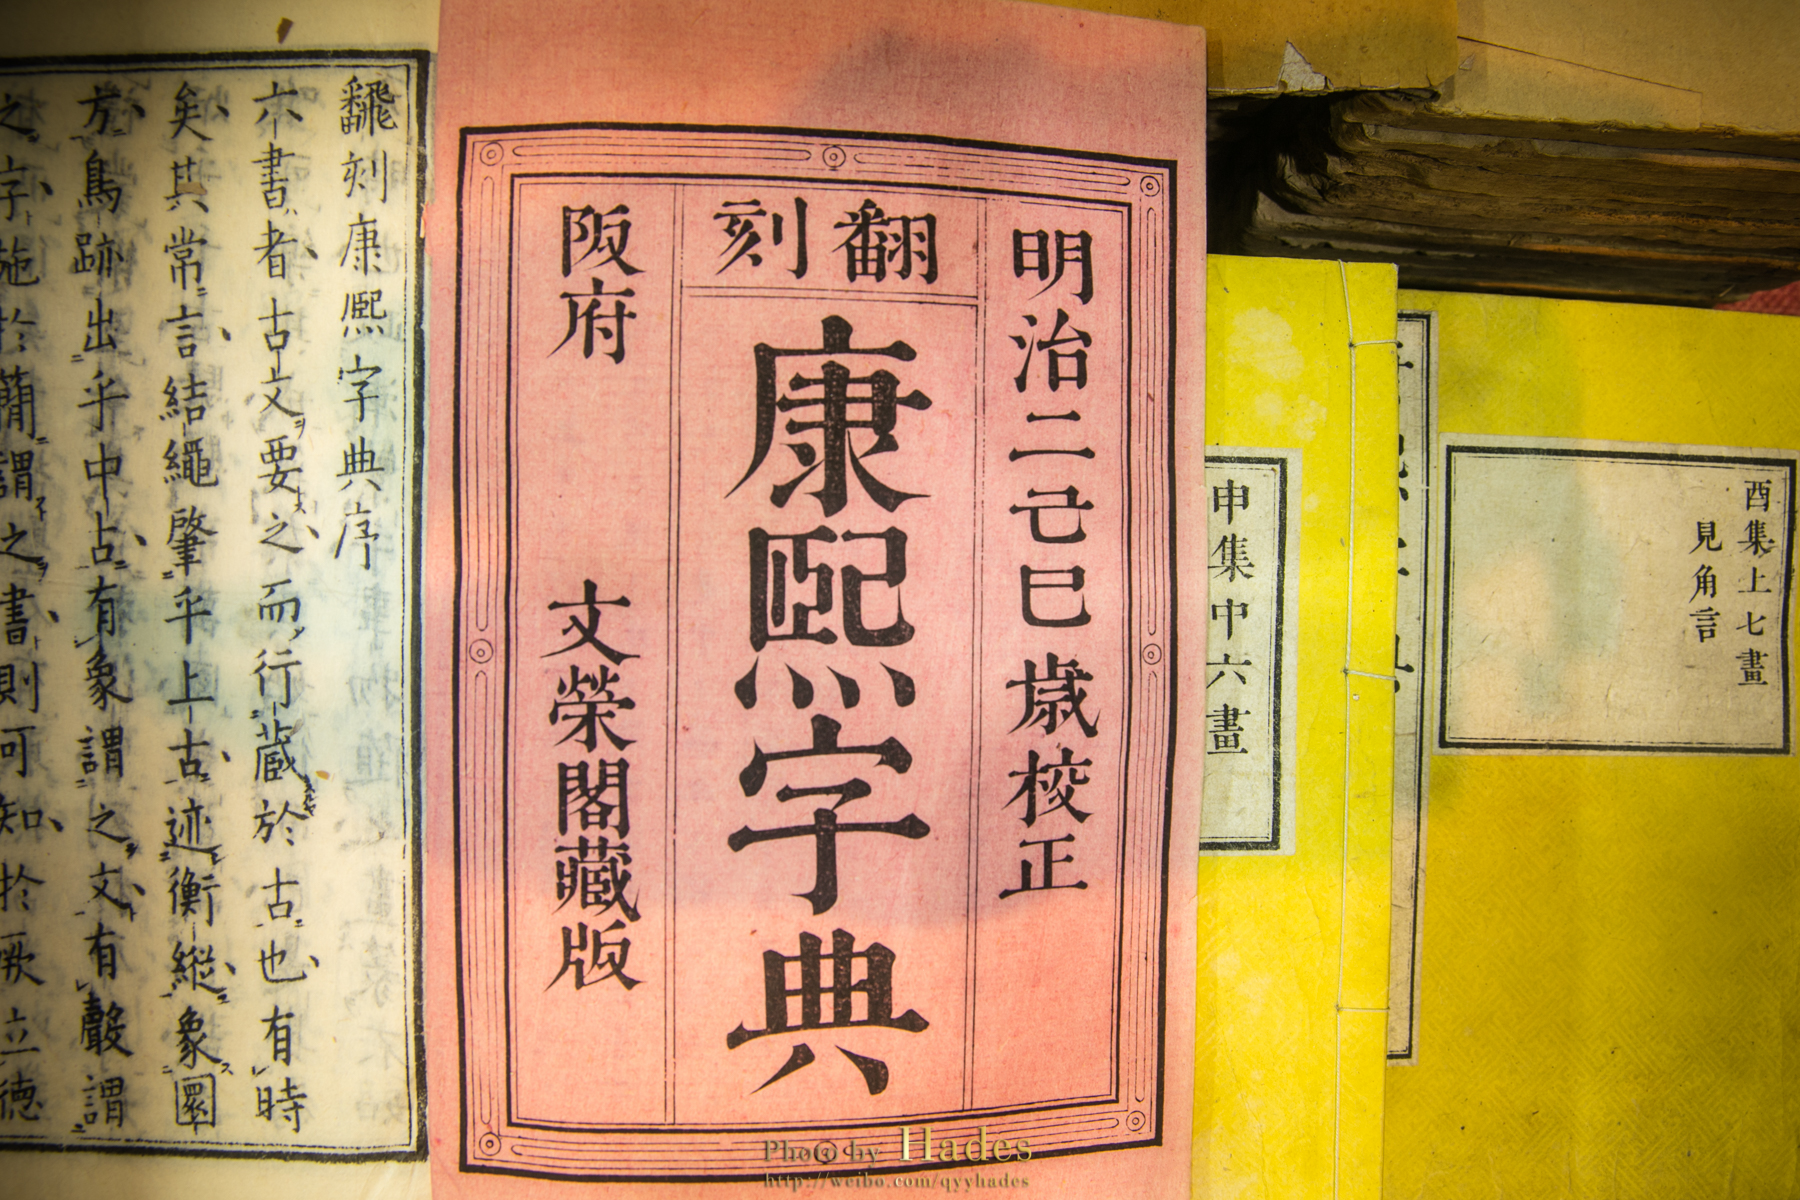 明治二己巳歳校正
翻刻
康熙字典
阪府
文榮閣藏版
飜刻康熙字典序
六書者古文要之而行蔵於古也有時
矣其常言結繩肇乎上古迹衡縱象圜
方鳥跡出乎中古有象謂之文有聲謂
之字施於簡謂之書則可知於厥立德
申集中六畫
酉集上七畫
見角言
Photo by Hades
http://weibo.com/qyyhades